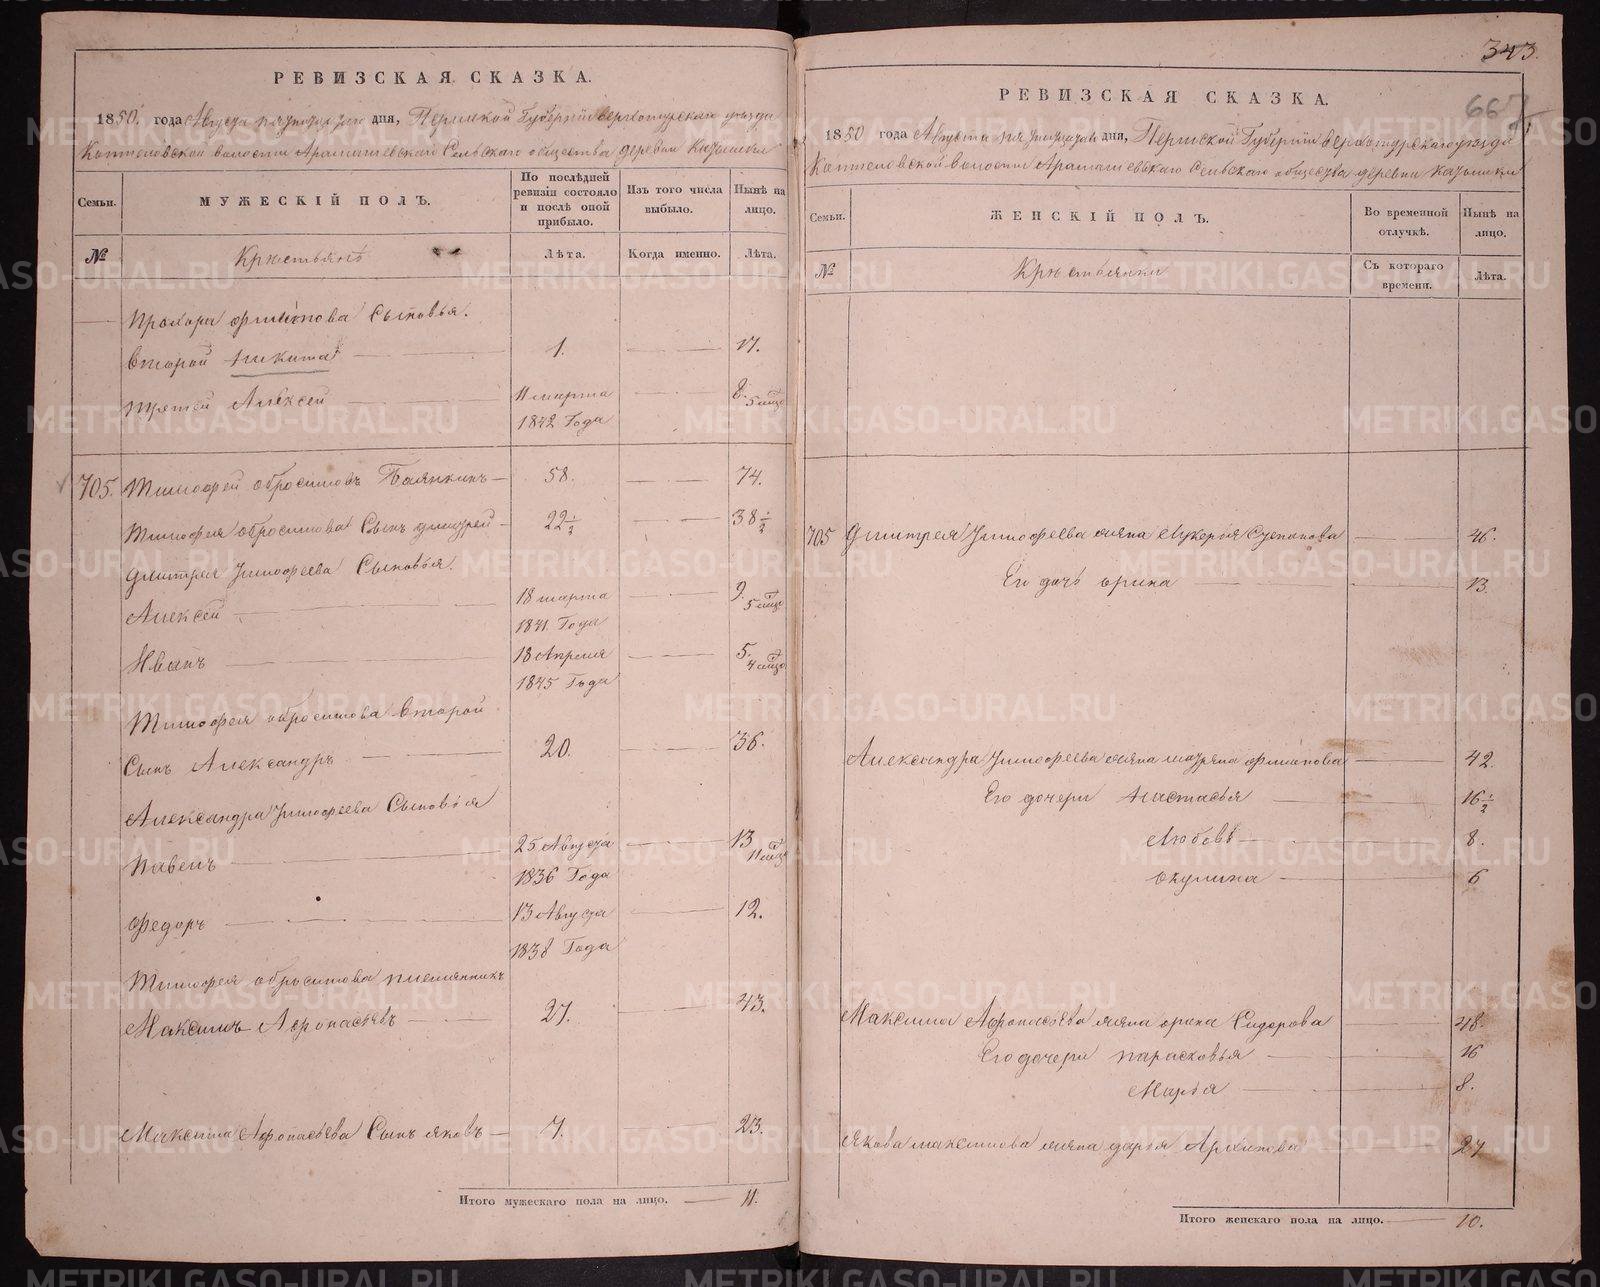 РЕВИЗСКАЯ СКАЗКА.
1850 года Августа дня, Пермской Губернии Верхотурскаго уезда
волости Арамашевскаго Сельскаго общества деревни
Семьи.
МУЖЕСКІЙ ПОЛЪ.
По послѣдней ревизіи состояло и послѣ оной прибыло.
Изъ того числа выбыло.
Нынѣ на лицо.
№
Крестьянъ
Лѣта.
Когда именно.
Лѣта.
Прохора Филипова Сыновья.
Второй Никита 1. 17.
третей Алексей 11 марта 8. 5 мцо
1842 Года
705. Тимофей обросимовъ 58. 74.
Тимофея обросимова Сынъ Дмитрей 22½ 38½
Дмитрея Тимофеева Сыновья.
Алексей 18 марта 9. 5 мцо
1841 Года
Иванъ 18 Апреля 5. 4 мцо
1845 Года
Тимофея обросимова второй
Сынъ Александръ 20. 36.
Александра Тимофеева Сыновья
Павелъ 25 Августа 13 11 мцо
1836 Года
Федоръ 13 Августа 12.
1838 Года
Тимофея обросимова племянникъ
Максимъ Афонасьевъ 27. 43.
Максима Афонасьева Сынъ яковъ 7. 23.
Итого мужескаго пола на лицо. 11.
343.
667
РЕВИЗСКАЯ СКАЗКА.
1850 года Августа дня, Пермской Губернии Верхотурскаго уезда
волости Арамашевскаго Сельскаго общества деревни
Семьи.
ЖЕНСКІЙ ПОЛЪ.
Во временной отлучкѣ.
Нынѣ на лицо.
№
Крестьянки
Съ котораго времени.
Лѣта.
705 Дмитрея Тимофеева жена Лукерья Степанова 46.
Его дочь орина 13.
Александра Тимофеева жена Матрена Филипова 42.
Его дочери Настасья 16½
Любовь 8.
окулина 6
Максима Афонасьева жена орина Сидорова 48.
Его дочери парасковья 16
Марья 8.
якова максимова жена дарья Архипова 27
Итого женскаго пола на лицо. 10.
METRIKI.GASO-URAL.RU